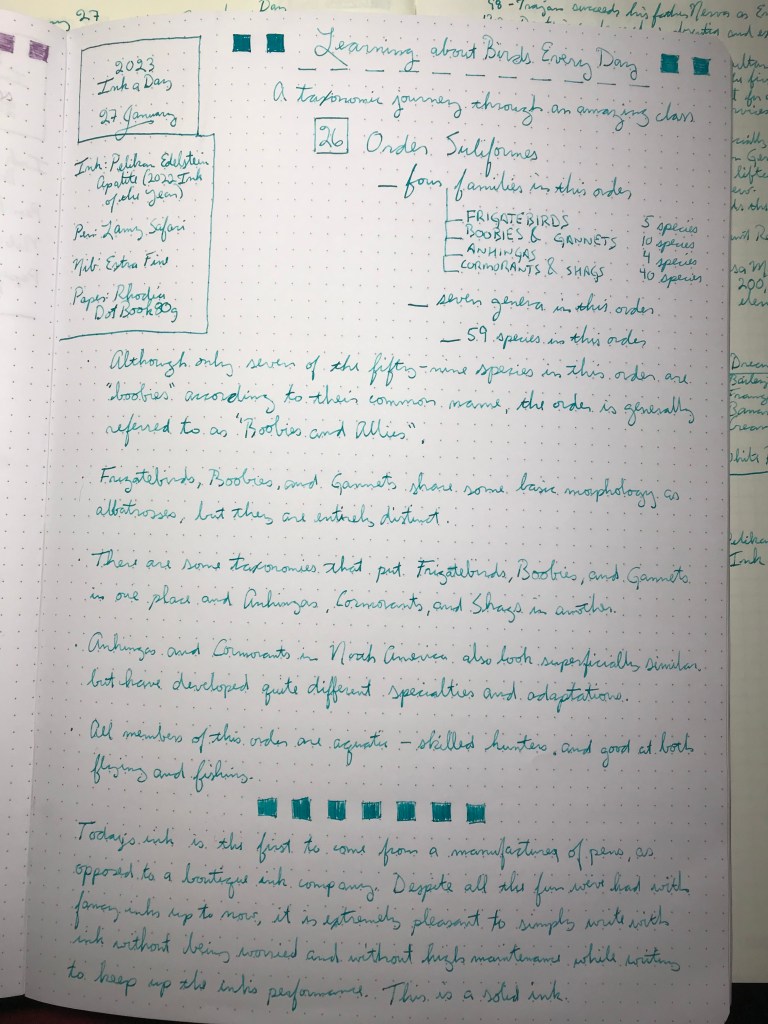 Learning about Birds Every Day
A taxonomic journey through an amazing class
2023
Ink a Day
27 January
Ink: Pelikan Edelstein
Apatite (2022 Ink
of the Year)
Pen: Lamy Safari
Nib: Extra Fine
Paper: Rhodia
Dot Book 80g
26 Order Suliformes
— four families in this order
FRIGATEBIRDS 5 species
BOOBIES & GANNETS 10 species
ANHINGAS 4 species
CORMORANTS & SHAGS 40 species
— seven genera in this order
— 59 species in this order
· Although only seven of the fifty-nine species in this order are
"boobies" according to their common name, the order is generally
referred to as "Boobies and Allies".
· Frigatebirds, Boobies, and Gannets share some basic morphology as
albatrosses, but they are entirely distinct.
· There are some taxonomies that put Frigatebirds, Boobies, and Gannets
in one place and Anhingas, Cormorants, and Shags in another.
· Anhingas and Cormorants in North America also look superficially similar
but have developed quite different specialties and adaptations.
· All members of this order are aquatic – skilled hunters, and good at both
flying and fishing.
Today's ink is the first to come from a manufacturer of pens, as
opposed to a boutique ink company. Despite all the fun we've had with
fancy inks up to now, it is extremely pleasant to simply write with
ink without being worried and without high maintenance while writing
to keep up the ink's performance. This is a solid ink.
27
Day
98 - Trajan succeeds his father Nerva as
Ink